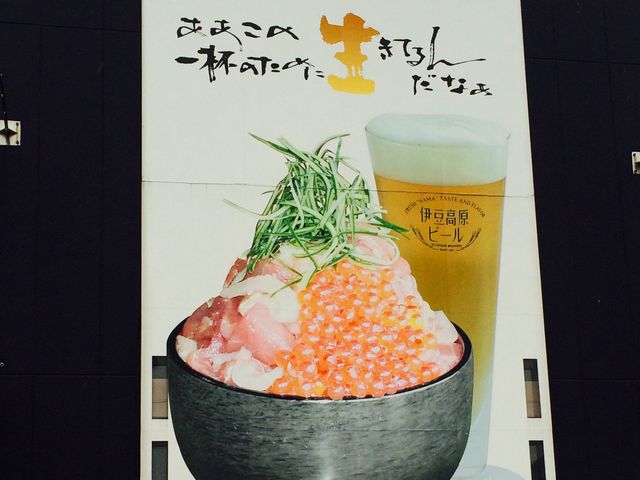 ああこの
一杯のために生きてるん
だなぁ
FRESH "NAMA" TASTE AND FLAVOR
伊豆高原
ビール